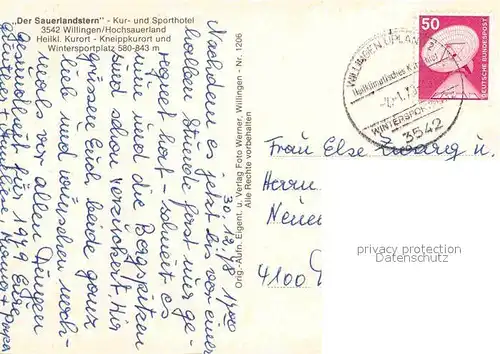 „Der Sauerlandstern" - Kur- und Sporthotel
3542 Willingen/Hochsauerland
Heilkl. Kurort - Kneippkurort und
Wintersportplatz 580-843 m
Orig.-Aufn. Eigent. u. Verlag Foto Werner, Willingen - Nr. 1206
Alle Rechte vorbehalten
50
DEUTSCHE BUNDESPOST
WILLINGEN UPLAND
Heilklimatisches
WINTERSPORT
3542
30.12.78
Nachdem es jetzt bis vor einer
halben Stunde fast nur ge-
regnet hat - schneit es
nun und die Bergspitzen
sind schon verzuckert. Wir
grüssen Euch beide ganz
lieb und wünschen noch-
mals vor allen Dingen
Gesundheit für 1979 Eure
Mama + Papa
Frau Else Zwarg u.
Herrn
4100
privacy protection